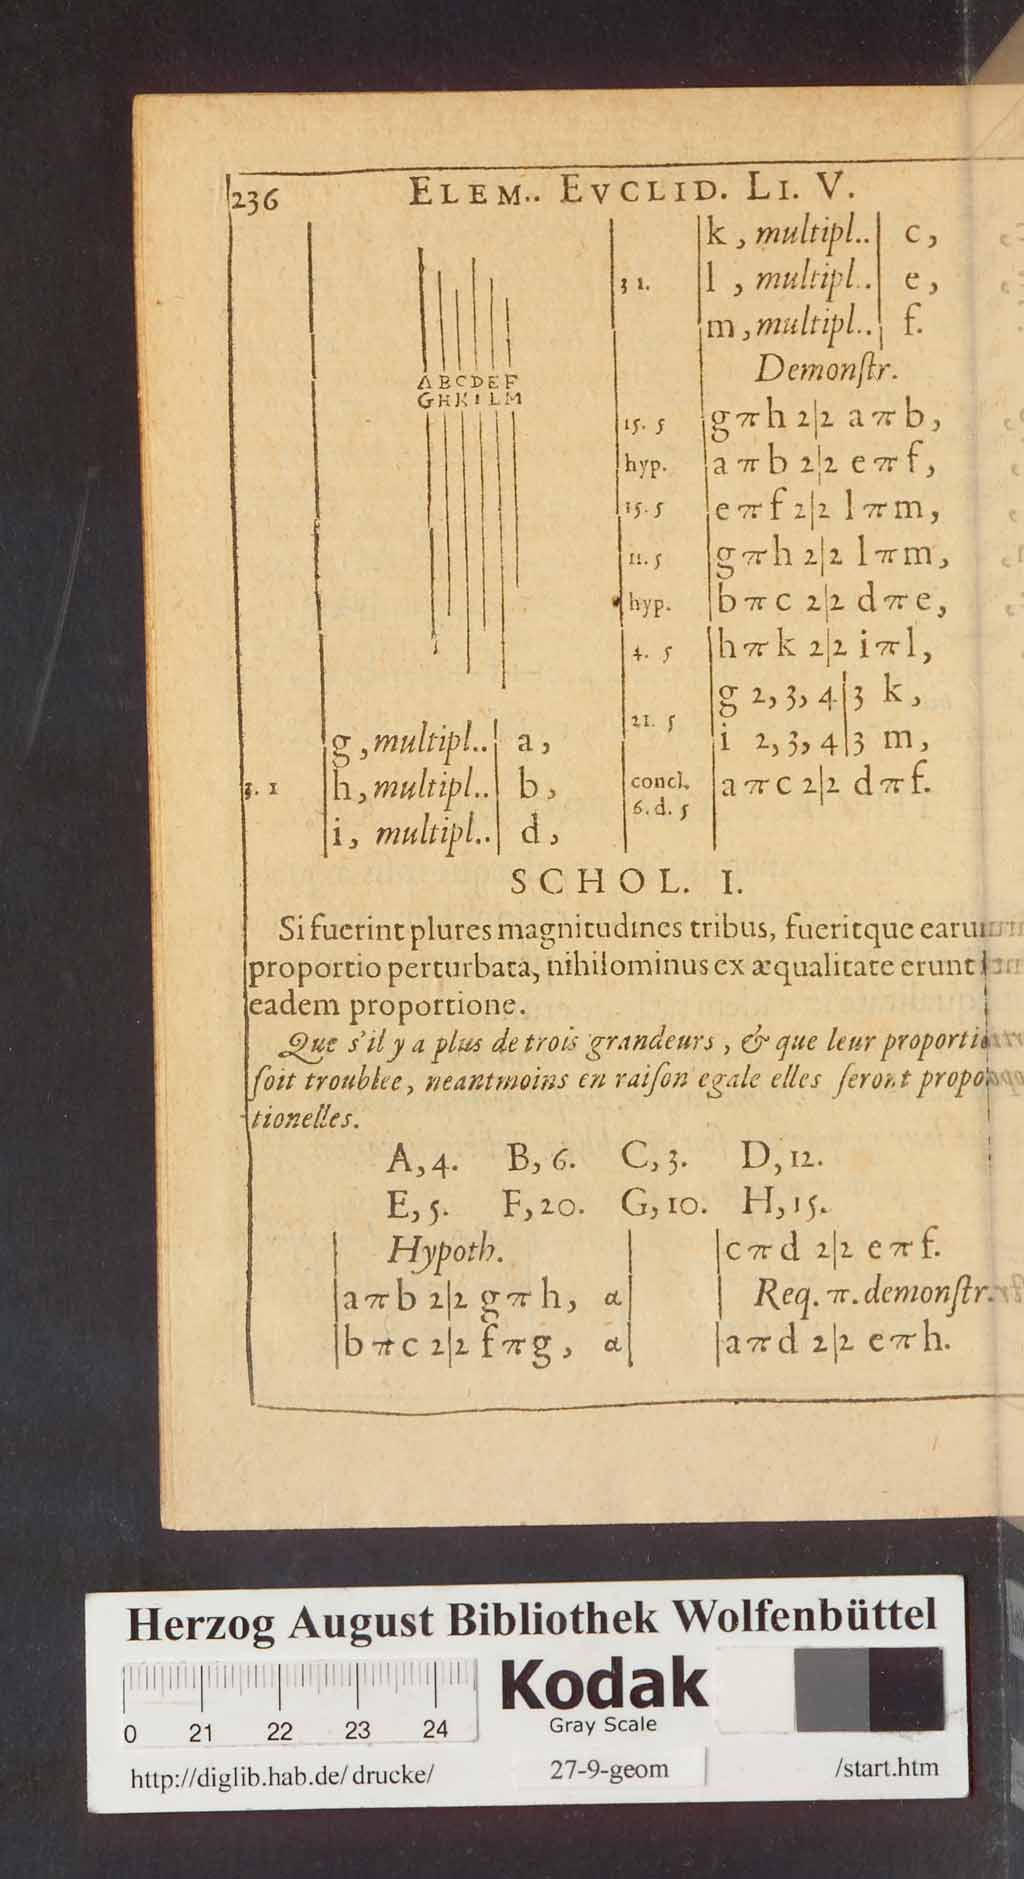 236 ELEM.. EVCLID. LI. V.
A B C D E F
G H K I L M
g, multipl.. | a,
3. 1 h, multipl.. | b,
i, multipl.. | d,
k, multipl.. | c,
3 1. l, multipl.. | e,
m, multipl.. | f.
Demonſtr.
15. 5 gπh 2|2 aπb,
hyp. aπb 2|2 eπf,
15. 5 eπf 2|2 lπm,
11. 5 gπh 2|2 lπm,
hyp. bπc 2|2 dπe,
4. 5 hπk 2|2 iπl,
g 2, 3, 4|3 k,
21. 5
i 2, 3, 4|3 m,
concl. aπc 2|2 dπf.
6. d. 5
SCHOL. I.
Si fuerint plures magnitudines tribus, fueritque earum
proportio perturbata, nihilominus ex æqualitate erunt
eadem proportione.
Que s'il y a plus de trois grandeurs, & que leur proporti
ſoit troublee, neantmoins en raiſon egale elles ſeront propo
tionelles.
A, 4. B, 6. C, 3. D, 12.
E, 5. F, 20. G, 10. H, 15.
Hypoth.
aπb 2|2 gπh, α
bπc 2|2 fπg, α
cπd 2|2 eπf.
Req. π. demonſtr.
aπd 2|2 eπh.
Herzog August Bibliothek Wolfenbüttel
0 21 22 23 24
Kodak
Gray Scale
http://diglib.hab.de/drucke/ 27-9-geom /start.htm